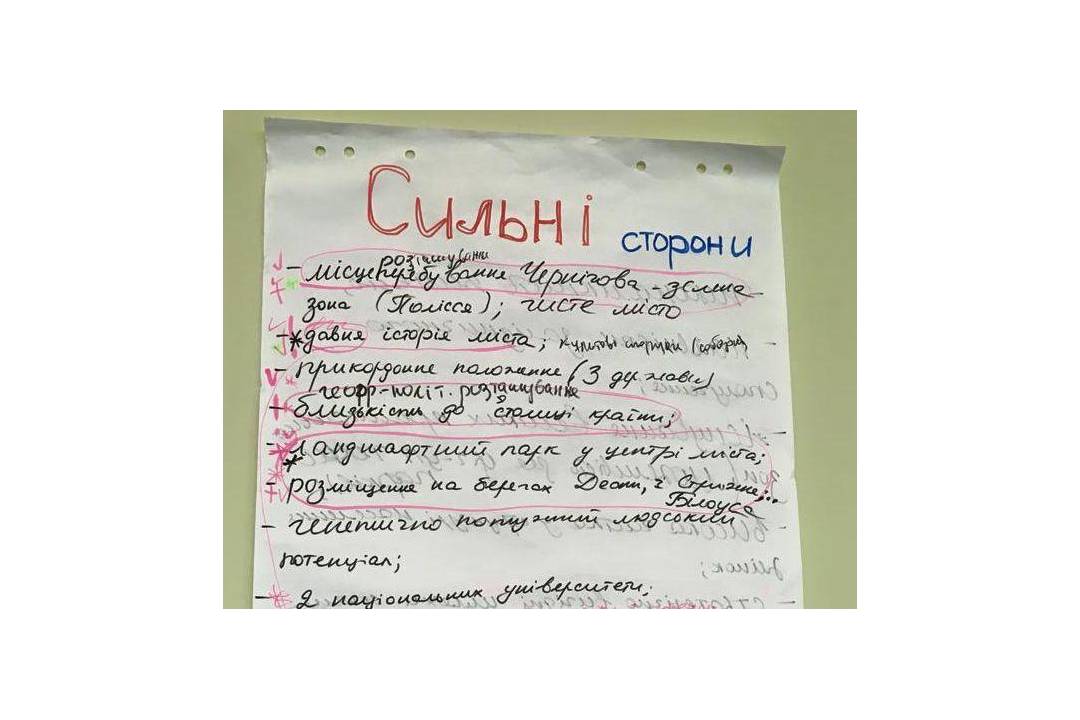 Сильні
сторони
розташування
- місцеперебування Чернігова - зелена
зона (Полісся); чисте місто
- * давня історія міста; культові споруди (собори)
- прикордонне положення (3 держави)
геогр-політ. розташування
- близькість до столиці країни;
- ландшафтний парк у центрі міста;
* - розміщення на берегах Десни, Стрижня,..
Білоуса
- генетично потужний людський
потенціал;
- 2 національних університети;